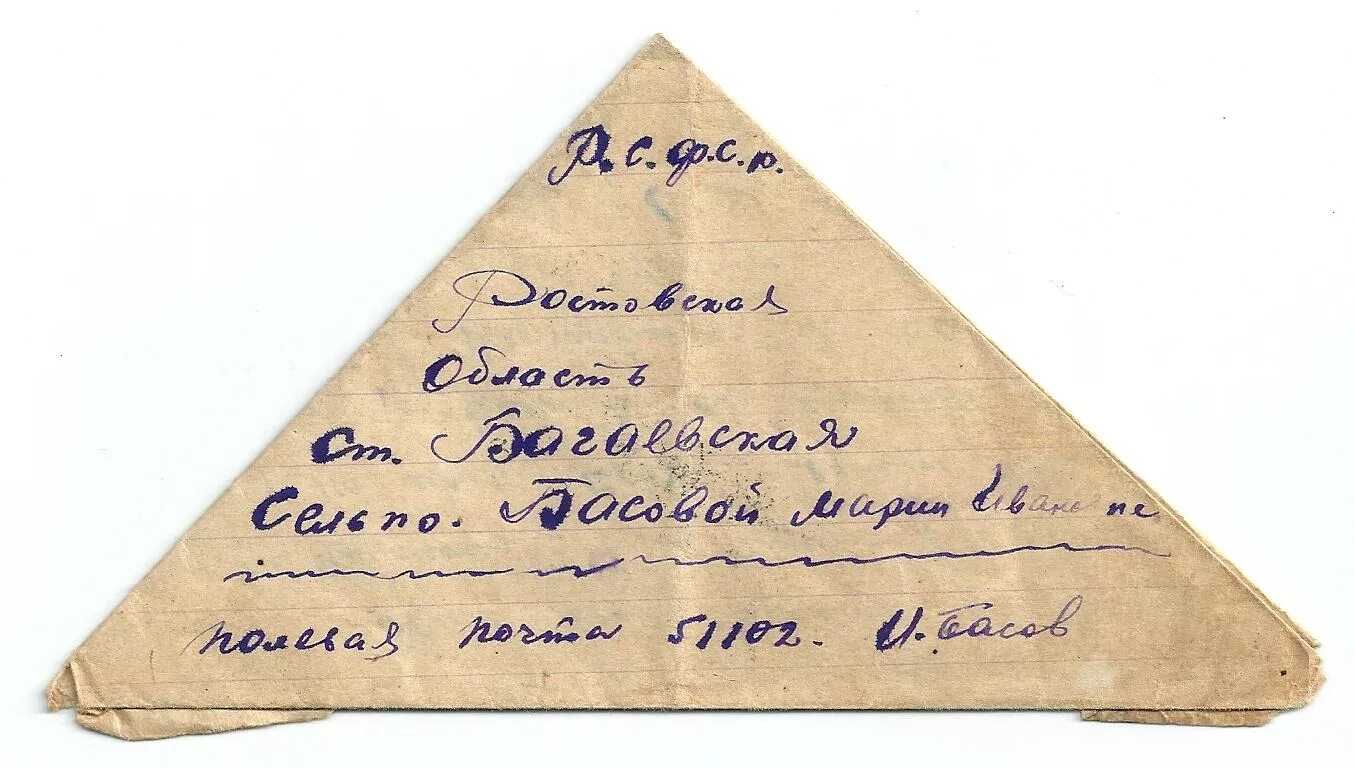 Р.С.Ф.С.Р.
Ростовская
Область
Ст. Багаевская
Сельпо. Басовой Марии
полевая почта 51102. И. Басов